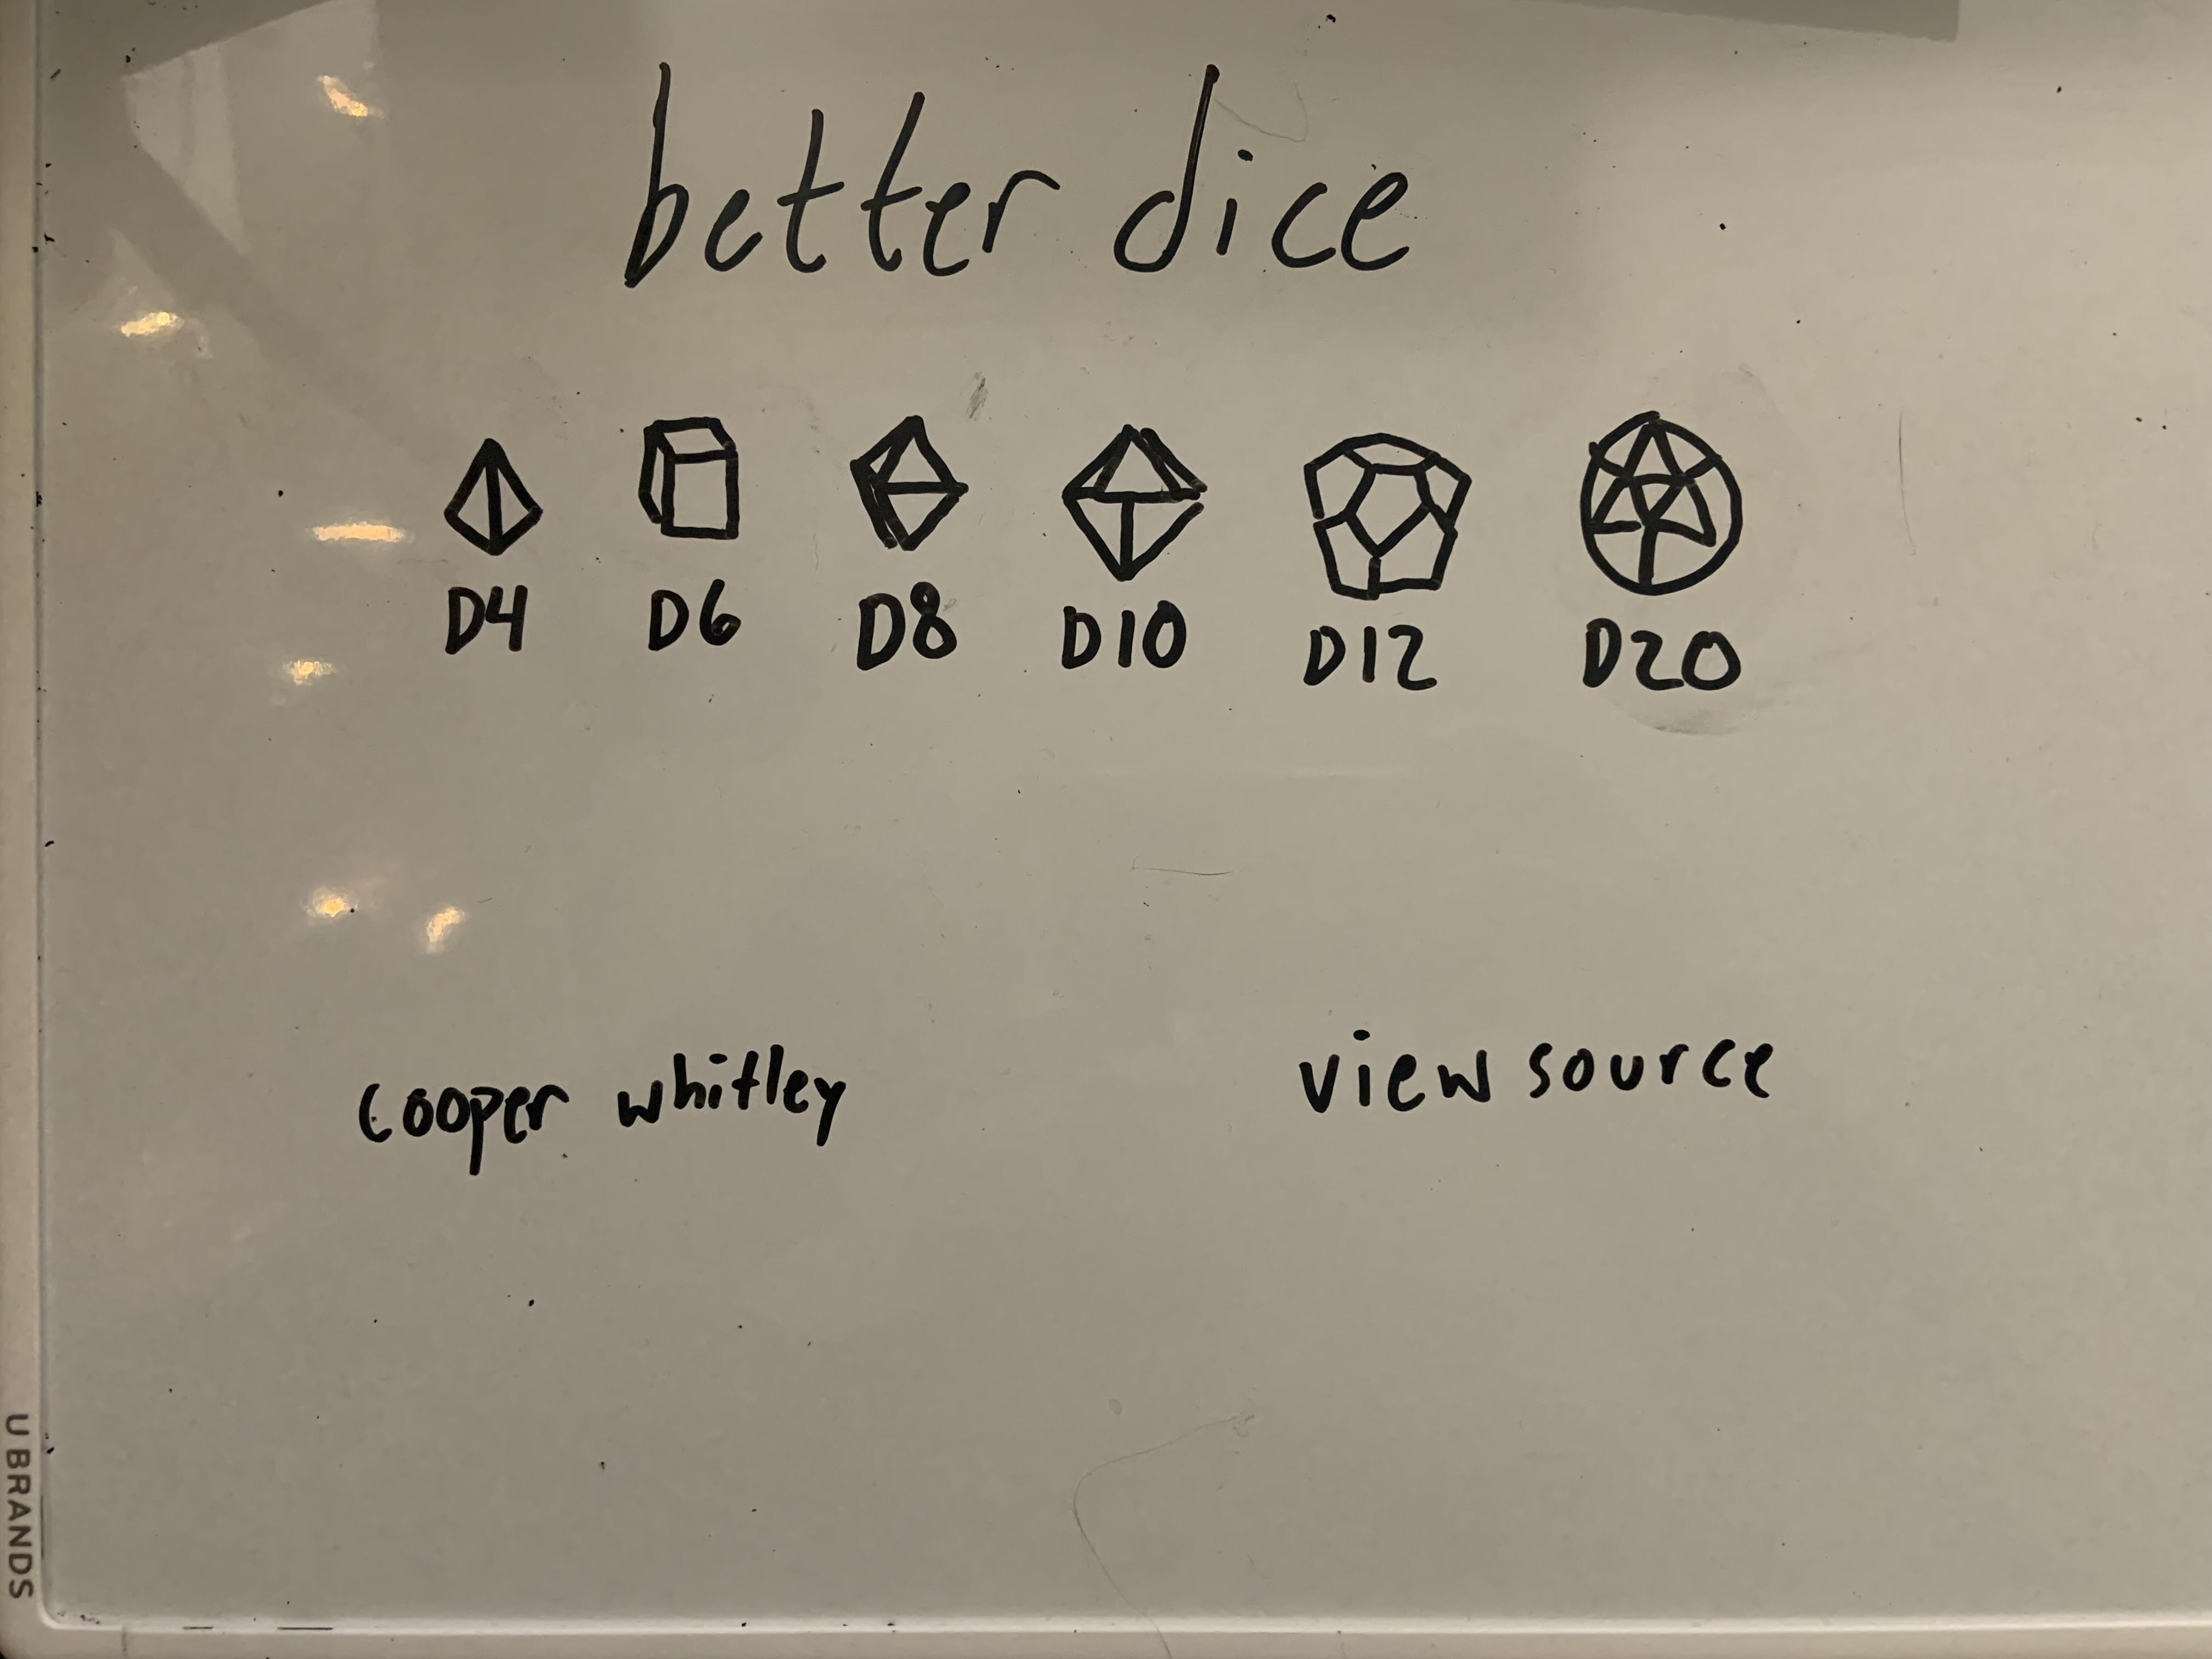 better dice
D4 D6 D8 D10 D12 D20
cooper whitley view source
U BRANDS